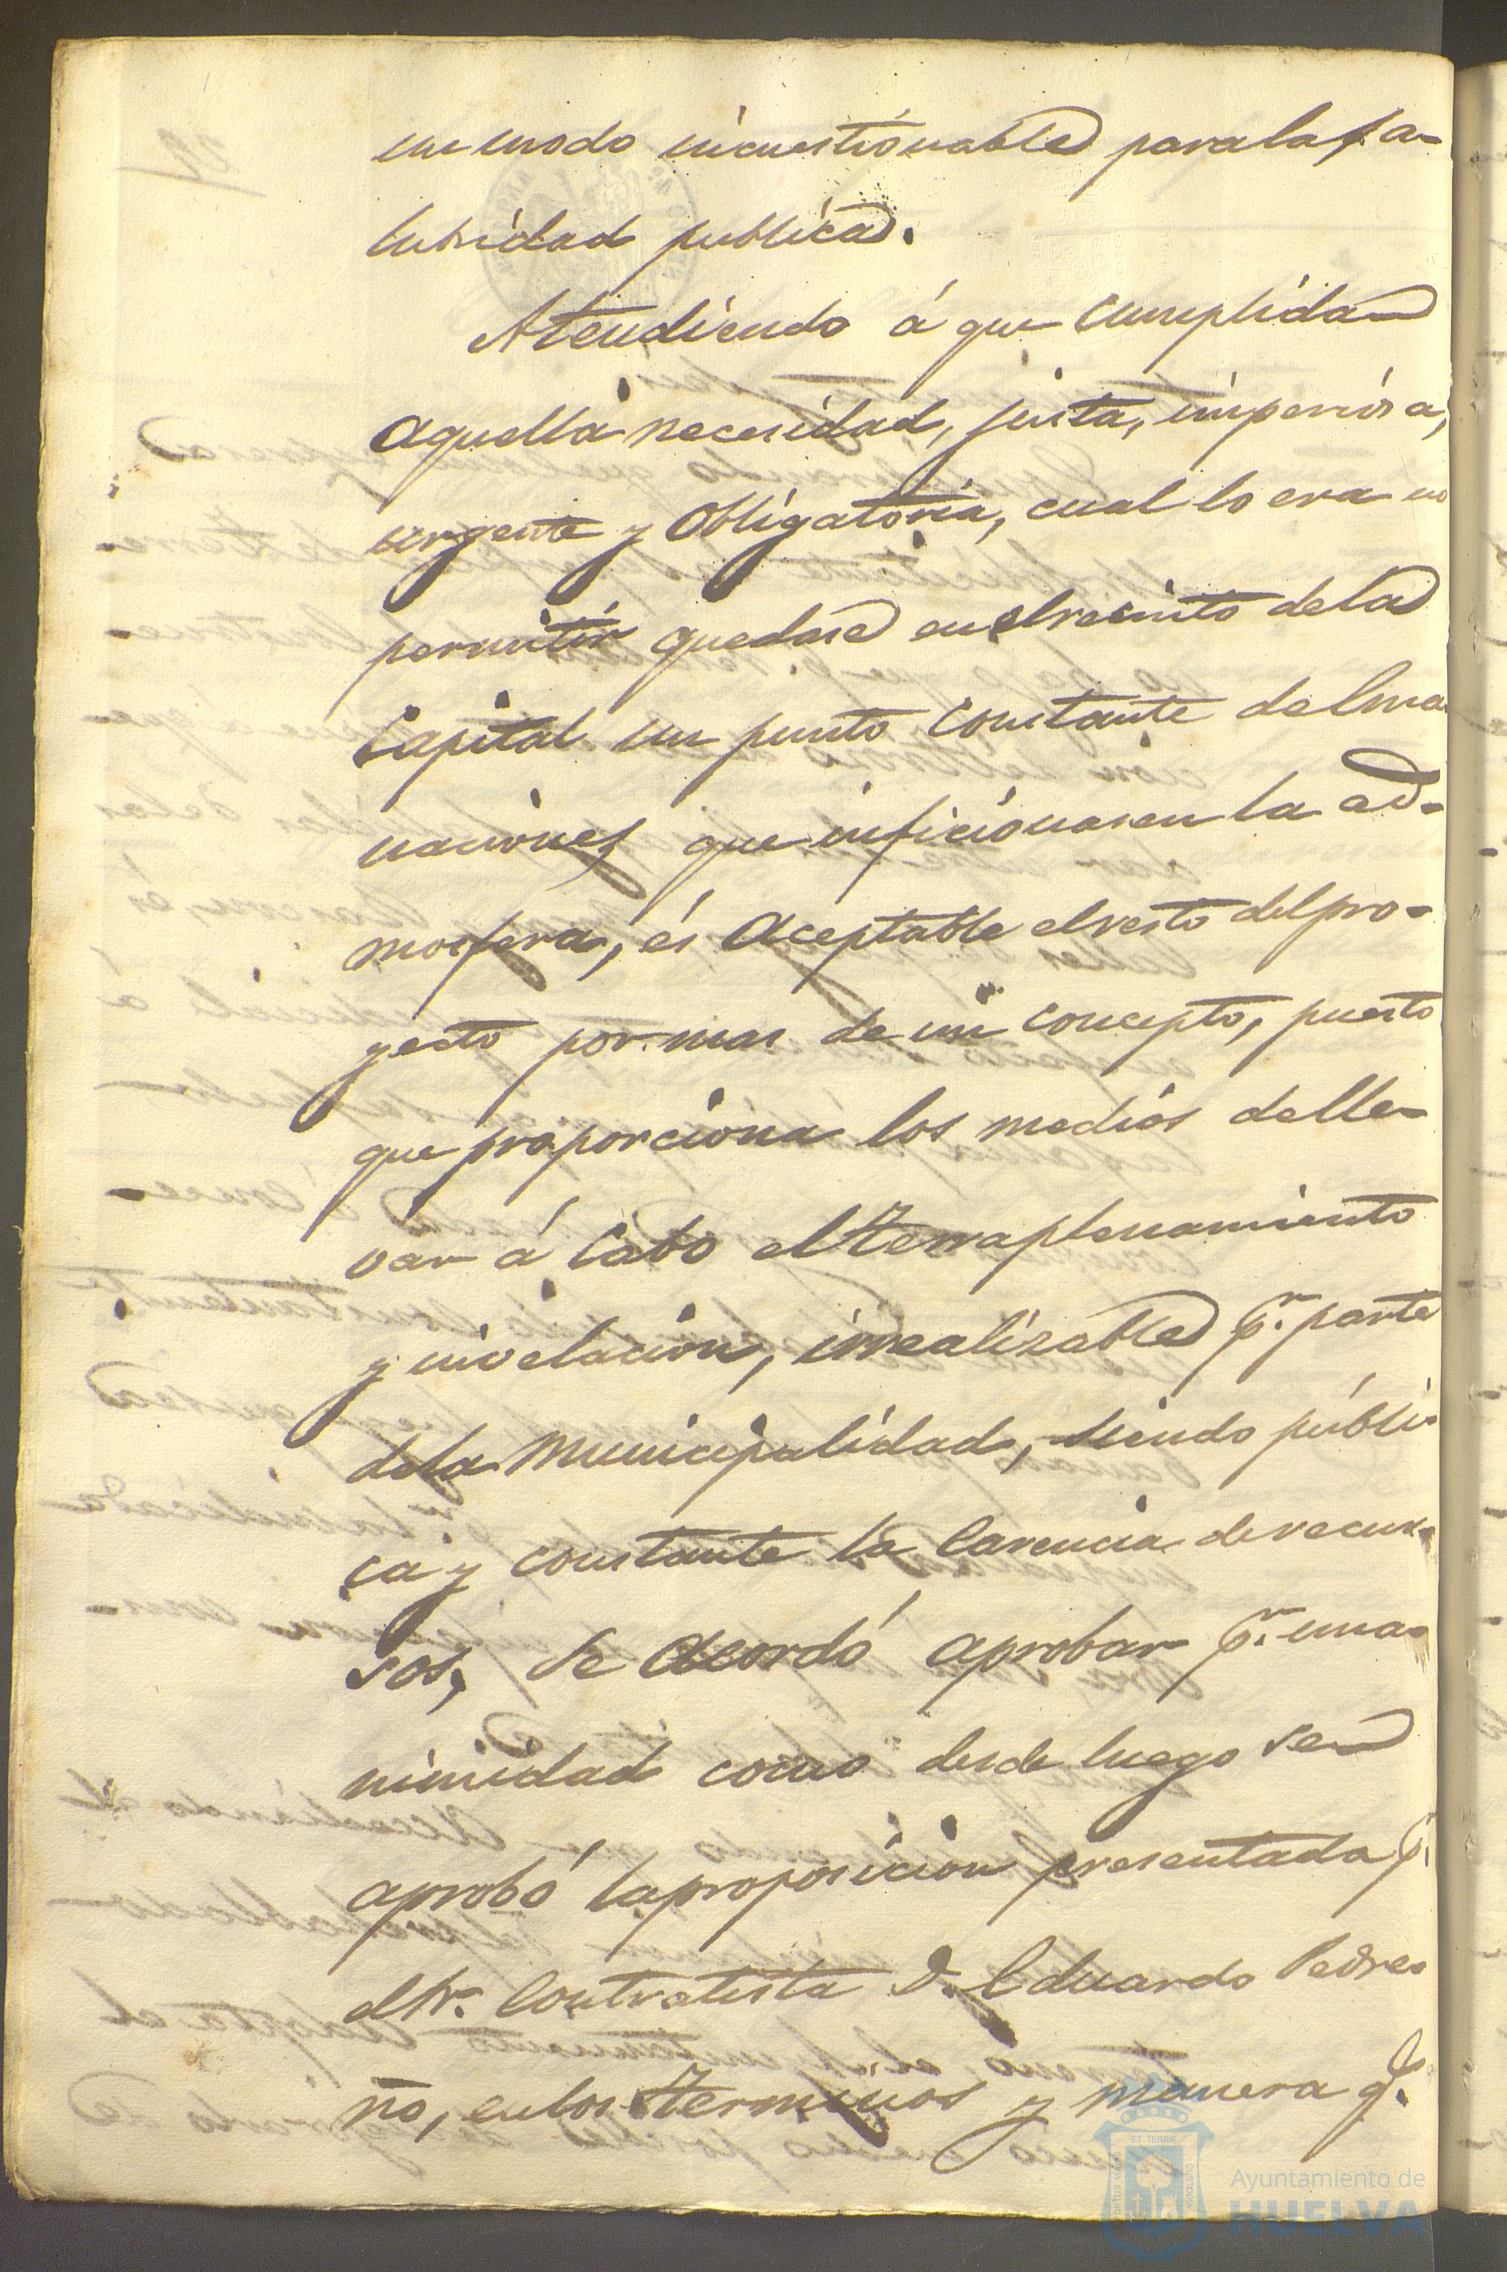 un modo incuestionable para la sa-
lubridad publica.
Atendiendo á que cumplida
aquella necesidad, justa, imperiosa,
urgente y obligatoria, cual lo era no
permitir quedase en el recinto de la
Capital un punto constante de Ema
naciones que inficionasen la at-
mosfera, és aceptable el resto del pro-
yecto por mas de un concepto, puesto
que proporciona los medios de lle-
var á cabo el terraplenamiento
y nivelacion, irrealizable p.r parte
de la Municipalidad, siendo públi-
ca y constante la carencia de recur-
sos, se acordó aprobar p.r una-
nimidad como desde luego se
aprobó la proposicion presentada p.r
el Sr. Contratista D. Eduardo
ño, en los terminos y manera q.e
Ayuntamiento de
HUELVA